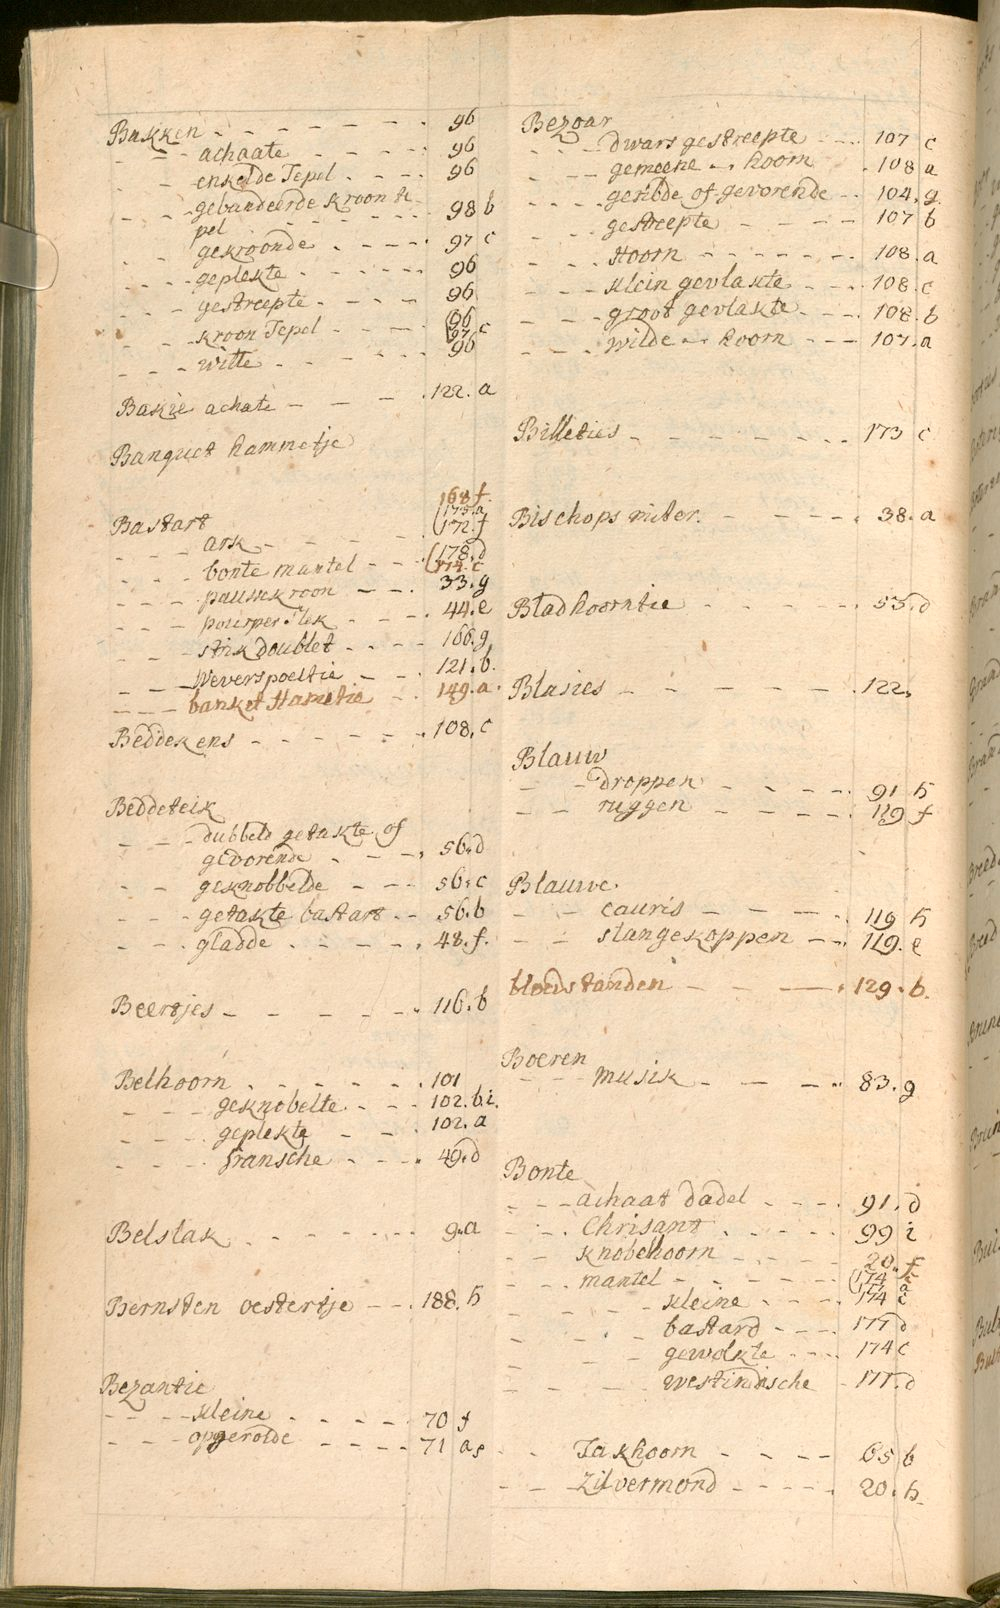 Bakken - - - - - - - - 96
- - - achaate - - - - - 96
- - - enkelde Tepel - - - - 96
- - - gebandeerde kroon te
pel 98 b
- - - gekroonde - - - - - 97 c
- - - geplekte - - - - - - 96
- - - gestreepte - - - - - 96
- - - kroon Tepel - - - - (96
(97 c
- - - witte - - - - - - 96
Bakie achate - - - - 122. a
Banquet hammetje
Bastart 168 f.
(175.a
- - - ark - - - - - (172. f
- - - bonte mantel - - - (178. d
174. c
- - - pausekroon - - - 33. g
- - - pourper slek - - - 44. e
- - - strik doublet - - - - 166. g
- - - Weverspoeltie - - - 121. b.
- - - banket Hametie - - 149. a.
Beddekens - - - - - - 108. c
Beddeteik
- - - dubbeld getakte of
gevorende - - - - 56. d
- - geknobbelde - - - - 56. c
- - - getakte bastart - - 56. b
- - - gladde - - - - - - 48. f.
Beertjes - - - - - - - 116. b
Belhoorn - - - - - - - 101
- - - geknobelte - - - - 102. b.i.
- - - geplekte - - - - 102. a
- - - fransche - - - - 49. d
Belslak - - - - - - 9. a
Bernsten oestertje - - - 188. h
Bezantie
- - - - kleine - - - - - 70 f
- - - opgerolde - - - - 71 a
Bezoar
- - - dwars gestreepte - - - 107 c
- - - gemeene - - hoorn - 108 a
- - - geribde of gevorende - - 104. g.
- - gestreepte - - - - 107 b
- - - Hoorn - - - - - - - 108. a
- - - klein gevlakte - - - - 108. c
- - - groot gevlakte - - - - 108. b
- - - wilde - - hoorn - - - 107. a
Billeties - - - - - - - 173 c
Bischops miter. - - - - - 38. a
Bladhoorntie - - - - - 53. d
Blasies - - - - - - - 122.
Blauw
- - - droppen - - - - - 91 h
- - - ruggen - - - - - - 119 f
Blauwe.
- - - cauris - - - - - 119 h
- - - slangekoppen - - - 119. e
bloedstanden - - - - - 129. b.
Boeren
- - - musik - - - - - 83. g
Bonte
- - - achaat dadel - - - - 91. d
- - - Chrisant - - - - - 99 i
- - - knobelhoorn - - - - 20. f
- - - mantel - - - - - - (174 c
- - - kleine - - - - 174 c
- - - bastard - - - - 177 d
- - - gewolkte - - - - 174 c
- - - westindische - 177. d
- - Takhoorn - - - - - 65 b
- - - Zilvermond - - - - - 20. h.